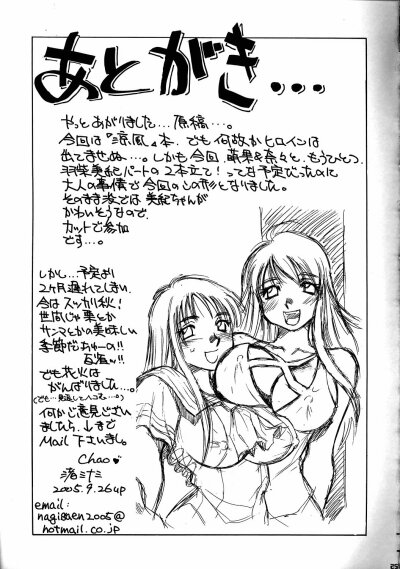 あとがき...
やっとあがりました...原稿...。
今回は『涼風』本、でも何故かヒロインは
出てませぬ...。しかも今回、萌果&奈々と、もうひとつ
羽柴美紀パートの2本立て!ってな予定だったのに
大人の事情で今回のこの形となりました。
そのままでは美紀ちゃんが
かわいそうなので、
カットで参加
です...。
しかし...予定より
2ヶ月遅れてしまい、
今はスッカリ秋!
世間じゃ栗とか
サンマとかの美味しい
季節だなぁーの!!
でも
がんばりました...。
何かご意見ござい
ましたら、↓まで
Mail下さいまし。
Chao♥
渚ミナミ
2005.9.26 up
email:
nagisaen2005@
hotmail.co.jp